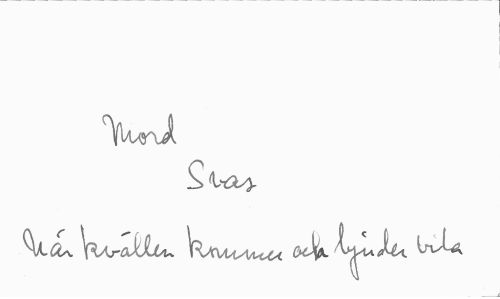 Mord
Svas
När kvällen kommer och bjuder vila